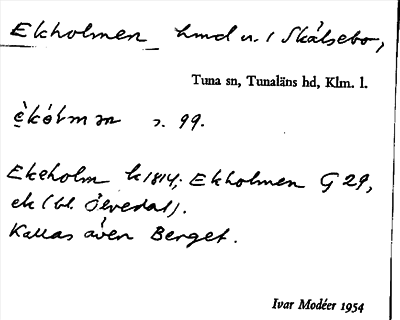 Ekholmen hmd u. / Skälsebo,
Tuna sn, Tunaläns hd, Klm. l.
s. 99.
Ekeholm k 1814; Ekholmen G 29,
ek (bl. Ölvedal).
Kallas även Berget.
Ivar Modéer 1954